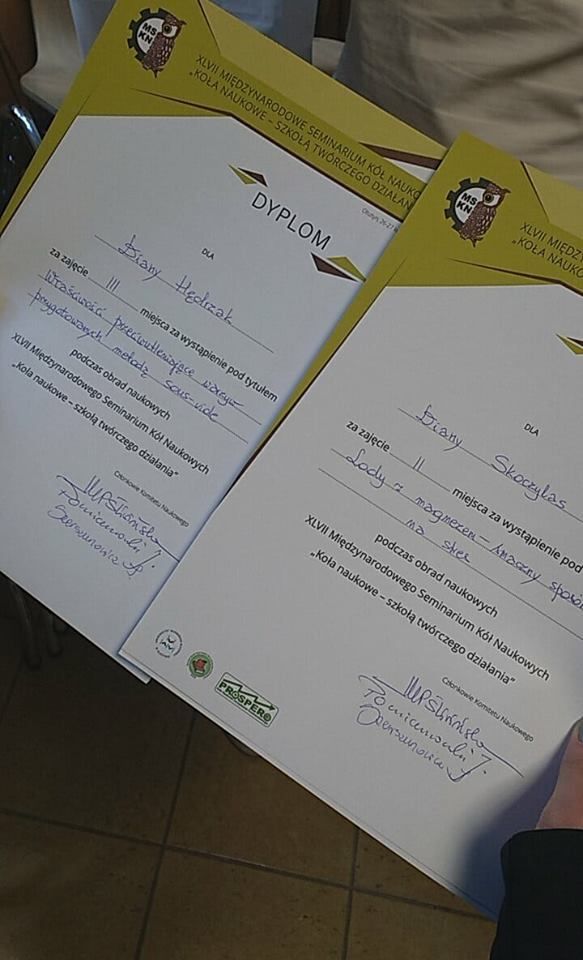 MS
KN
XLVII MIĘDZYNARODOWE SEMINARIUM KÓŁ NAUKO
„KOŁA NAUKOWE – SZKOŁA TWÓRCZEGO DZIAŁAN
Olsztyn 26-27
DYPLOM
DLA
Diany Hędrzak
za zajęcie III miejsca za wystąpienie pod tytułem
Właściwości przeciwutleniające warzyw
przygotowanych metodą sous-vide
podczas obrad naukowych
XLVII Międzynarodowego Seminarium Kół Naukowych
„Koła naukowe – szkołą twórczego działania”
Członkowie Komitetu Naukowego
MS
KN
XLVII MIĘDZYN
„KOŁA NAUKO
DLA
Diany Skoczylas
za zajęcie II miejsca za wystąpienie pod
Lody z magnezem – smaczny sposób
na stres
podczas obrad naukowych
XLVII Międzynarodowego Seminarium Kół Naukowych
„Koła naukowe – szkołą twórczego działania”
Członkowie Komitetu Naukowego
PROSPERO